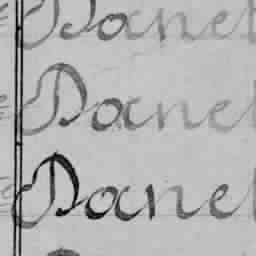 Danel
Danel
Danel